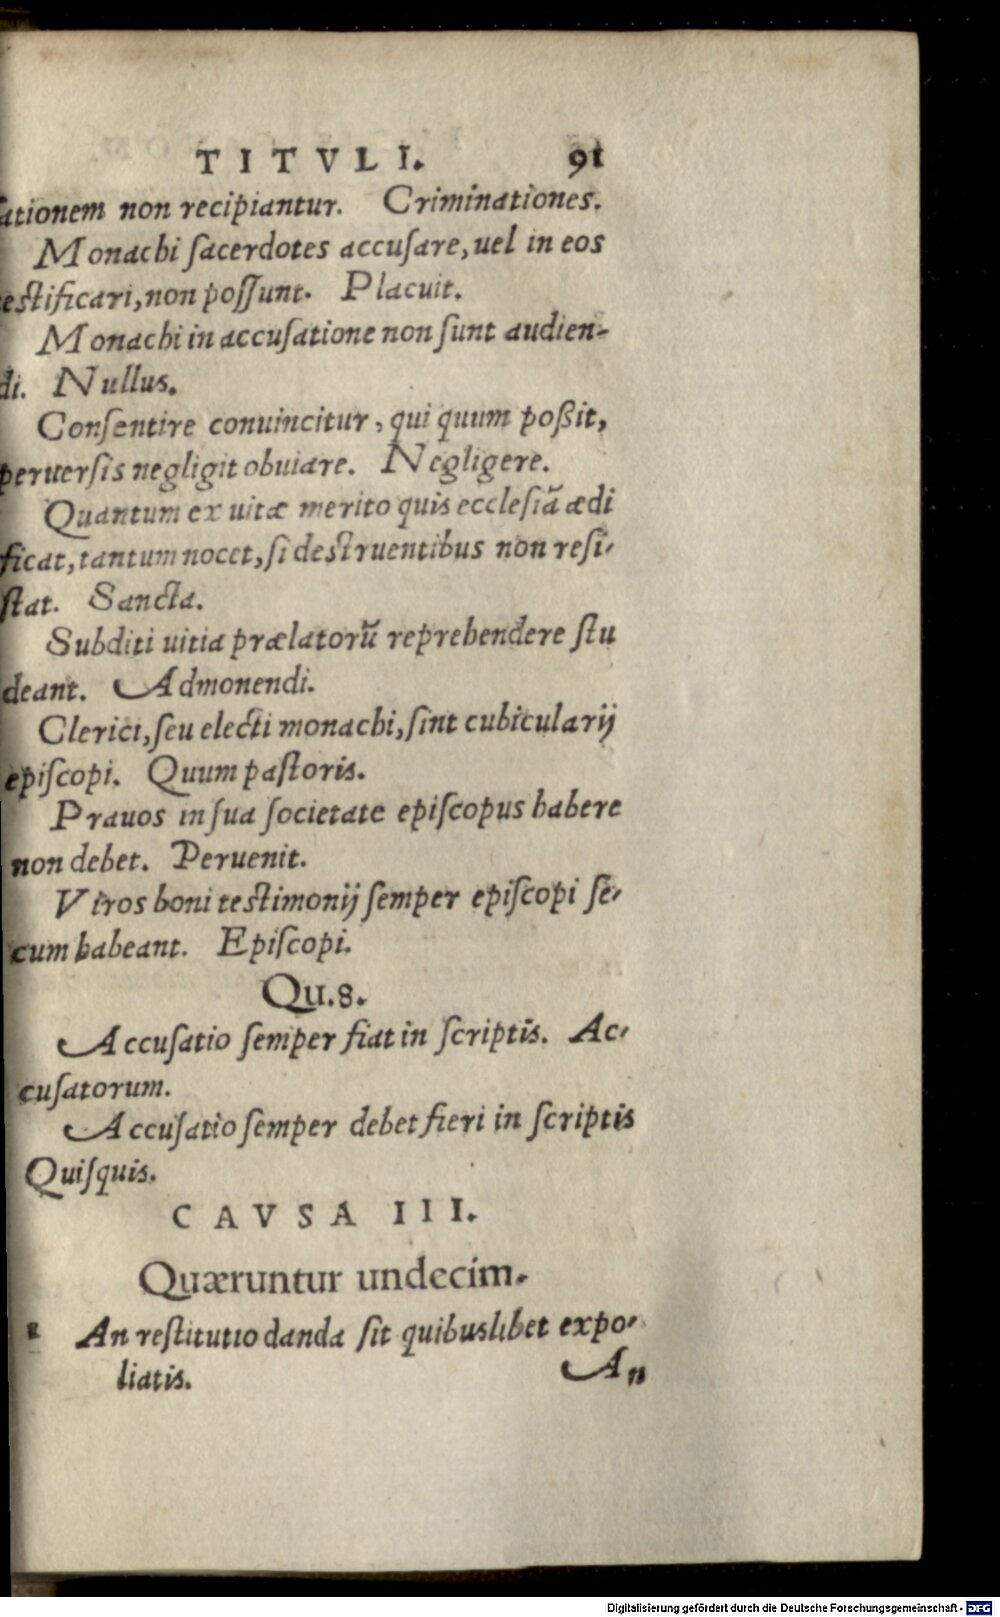 TITVLI. 91
ſationem non recipiantur. Criminationes.
Monachi ſacerdotes accuſare, uel in eos
teſtificari, non poſſunt. Placuit.
Monachi in accuſatione non ſunt audien-
di. Nullus.
Conſentire conuincitur, qui quum poßit,
peruerſis negligit obuiare. Negligere.
Quantum ex uitæ merito quis eccleſiã ædi
ficat, tantum nocet, ſi deſtruentibus non reſi-
ſtat. Sancta.
Subditi uitia prælatorũ reprehendere ſtu
deant. Admonendi.
Clerici, ſeu electi monachi, ſint cubicularij
epiſcopi. Quum paſtoris.
Prauos in ſua ſocietate epiſcopus habere
non debet. Peruenit.
Viros boni teſtimonij ſemper epiſcopi ſe-
cum habeant. Epiſcopi.
Qu.8.
Accuſatio ſemper fiat in ſcriptis. Ac-
cuſatorum.
Accuſatio ſemper debet fieri in ſcriptis
Quiſquis.
CAVSA III.
Quæruntur undecim.
1 An reſtitutio danda ſit quibuslibet expo-
liatis. An
Digitalisierung gefördert durch die Deutsche Forschungsgemeinschaft - DFG